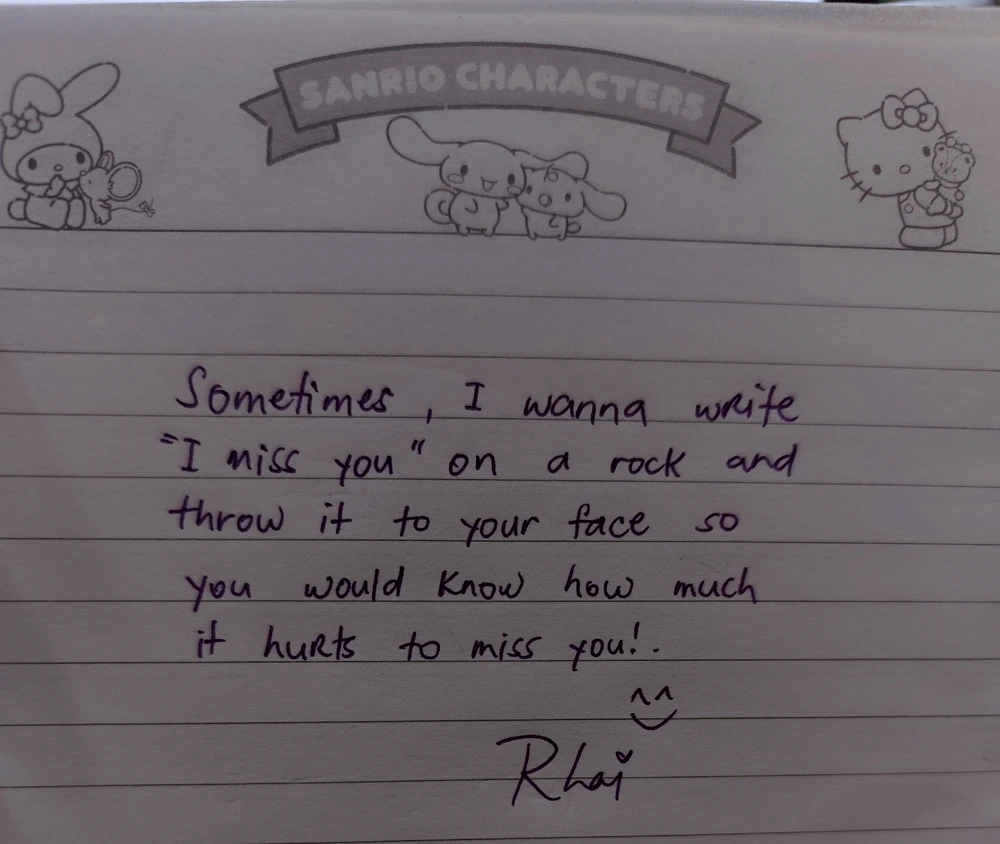 SANRIO CHARACTERS
Sometimes, I wanna write
"I miss you" on a rock and
throw it to your face so
you would know how much
it hurts to miss you!.
^^
Rhai